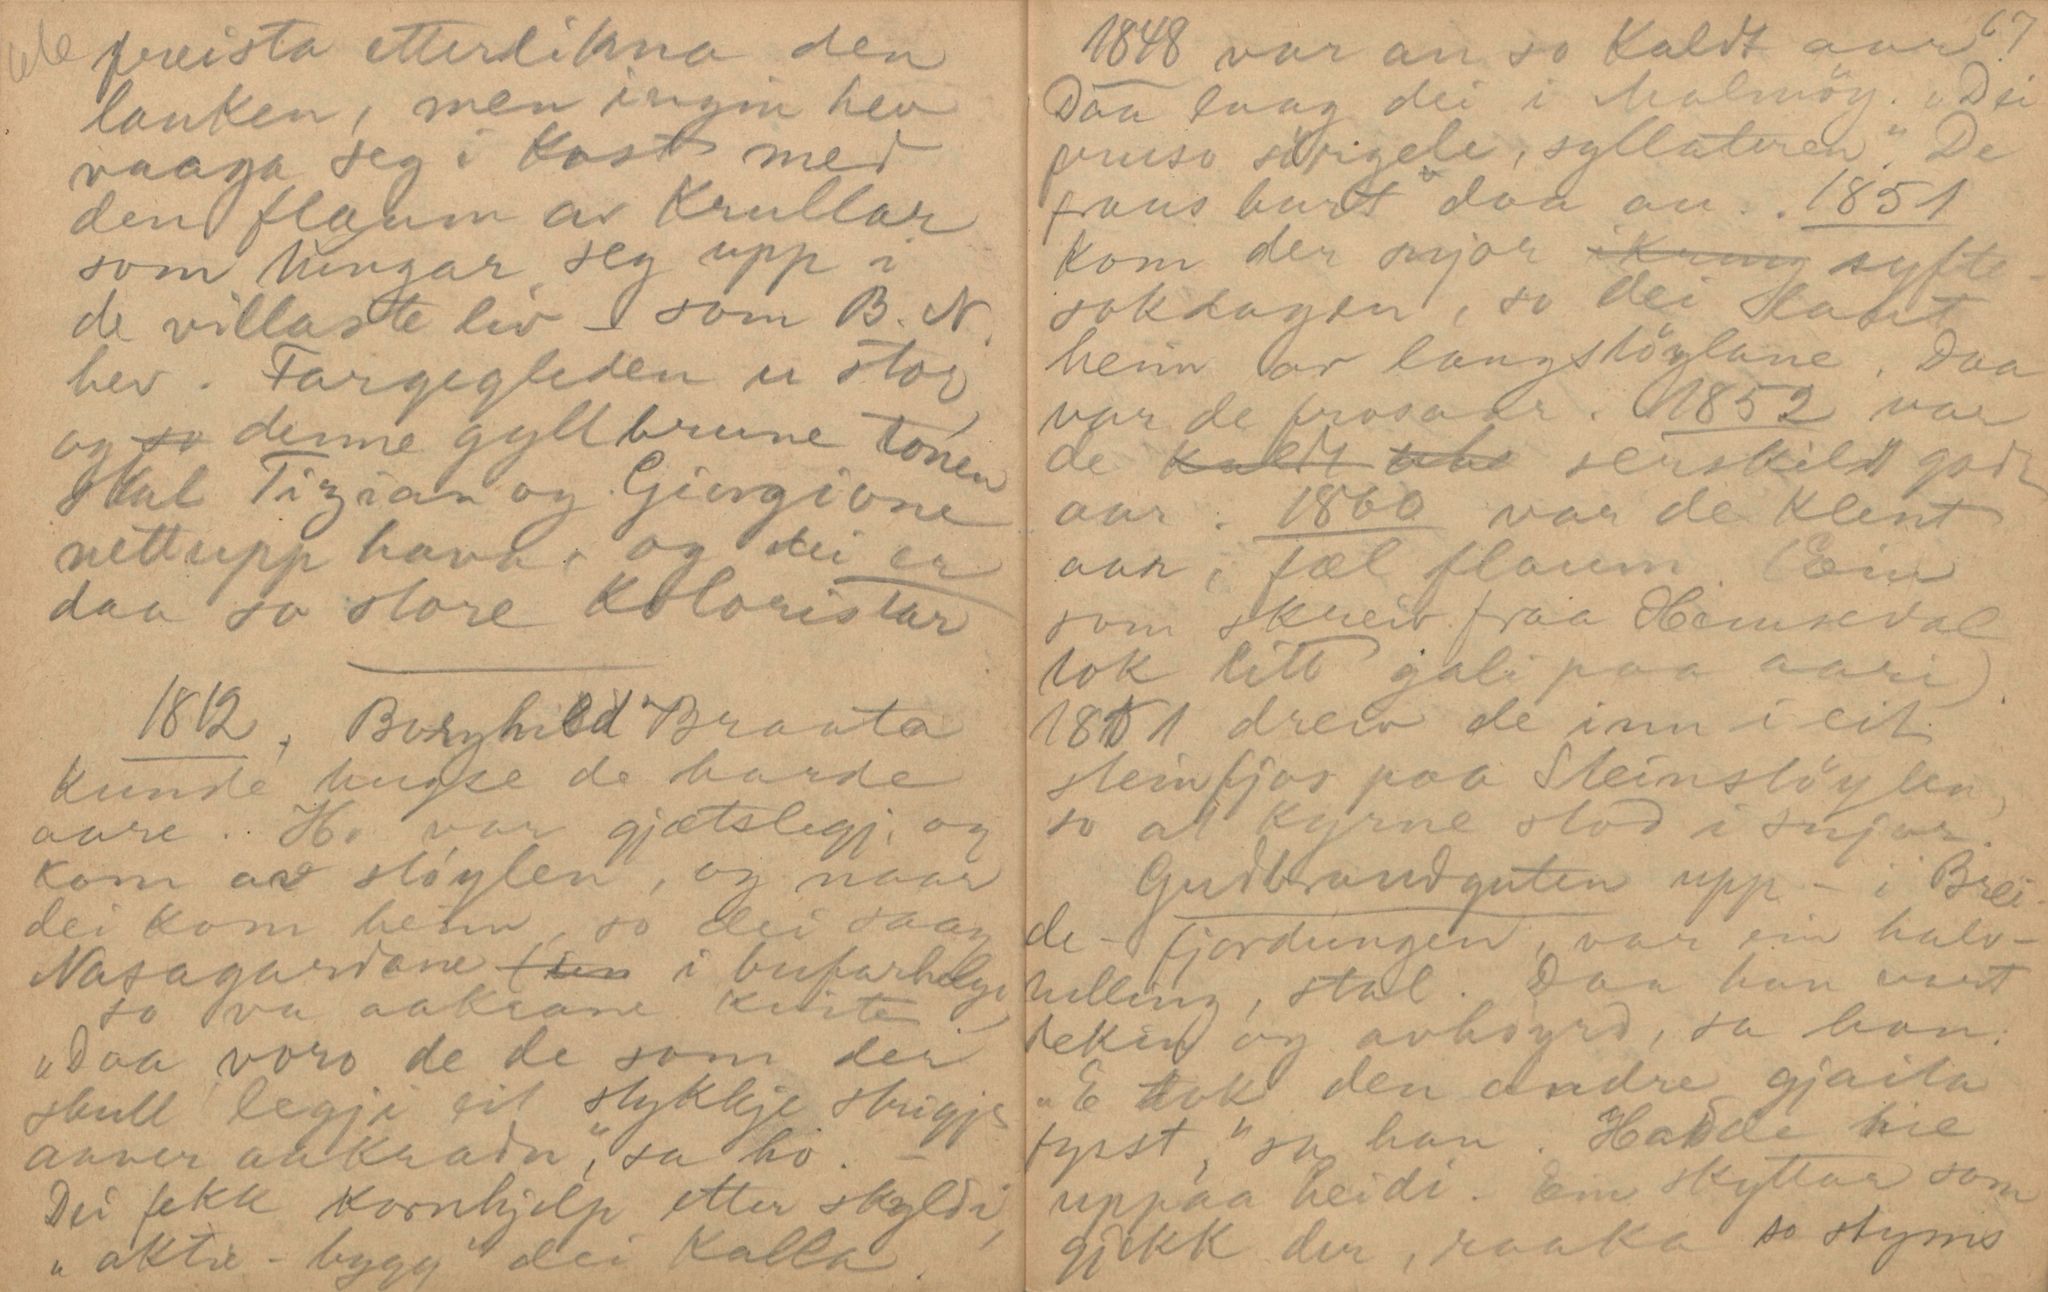 freista etterlikna den
lauken, men ingin hev
vaaga seg i kast med
den flaum av krullar
som slyngar seg upp i
de villaste liv – som B. N.
hev. Fargegleden er stor,
og so denne gyllbrune tonen
skal Tizian og Giorgione
nettupp hava, og dei er
daa so store koloristar
1812, Borghild Braata
kunde hugse de harde
aare. Ho var gjætslegj. og
kom av støylen, og naar
dei kom heim, so dei saag
Nasagardane i bufarhelgi,
so va aakrane kvite.
"Daa voro de de som der
skull legji eit stykkje strigje
aaver aakradn," sa ho. –
Dei fekk kornhjelp etter skyldi,
"aktie-bygg" dei kalla.
67
1848 var an so kaldt aar
Daa laag dei i Malmöy. "Dei
pruso syrgele, syllateren". De
fraus burt daa au. 1851
kom der snjor ikring syfte-
sokdagen, so dei laut
heim av langstöylane. Daa
var de frosaar. 1852 var
de kaldt serskildt godt
aar. 1860 var de kleint
aar, fæl flaum. (Ein
som skreiv fraa Hemsedal
tok litt gali paa aari).
1851 dreiv de inn i eit
steinfjos paa Steinstöylen,
so at kyrne stod i snjor.
Gudbrandguten upp i Brei-
de-fjordungen, var ein halv-
stal. Daa han vart
tekin og avhöyrd, sa han:
"E tok den andre gjaita
fyrst," sa han. Hadde hie
uppaa heidi. Ein skyttar som
gjekk der, raaka so styms